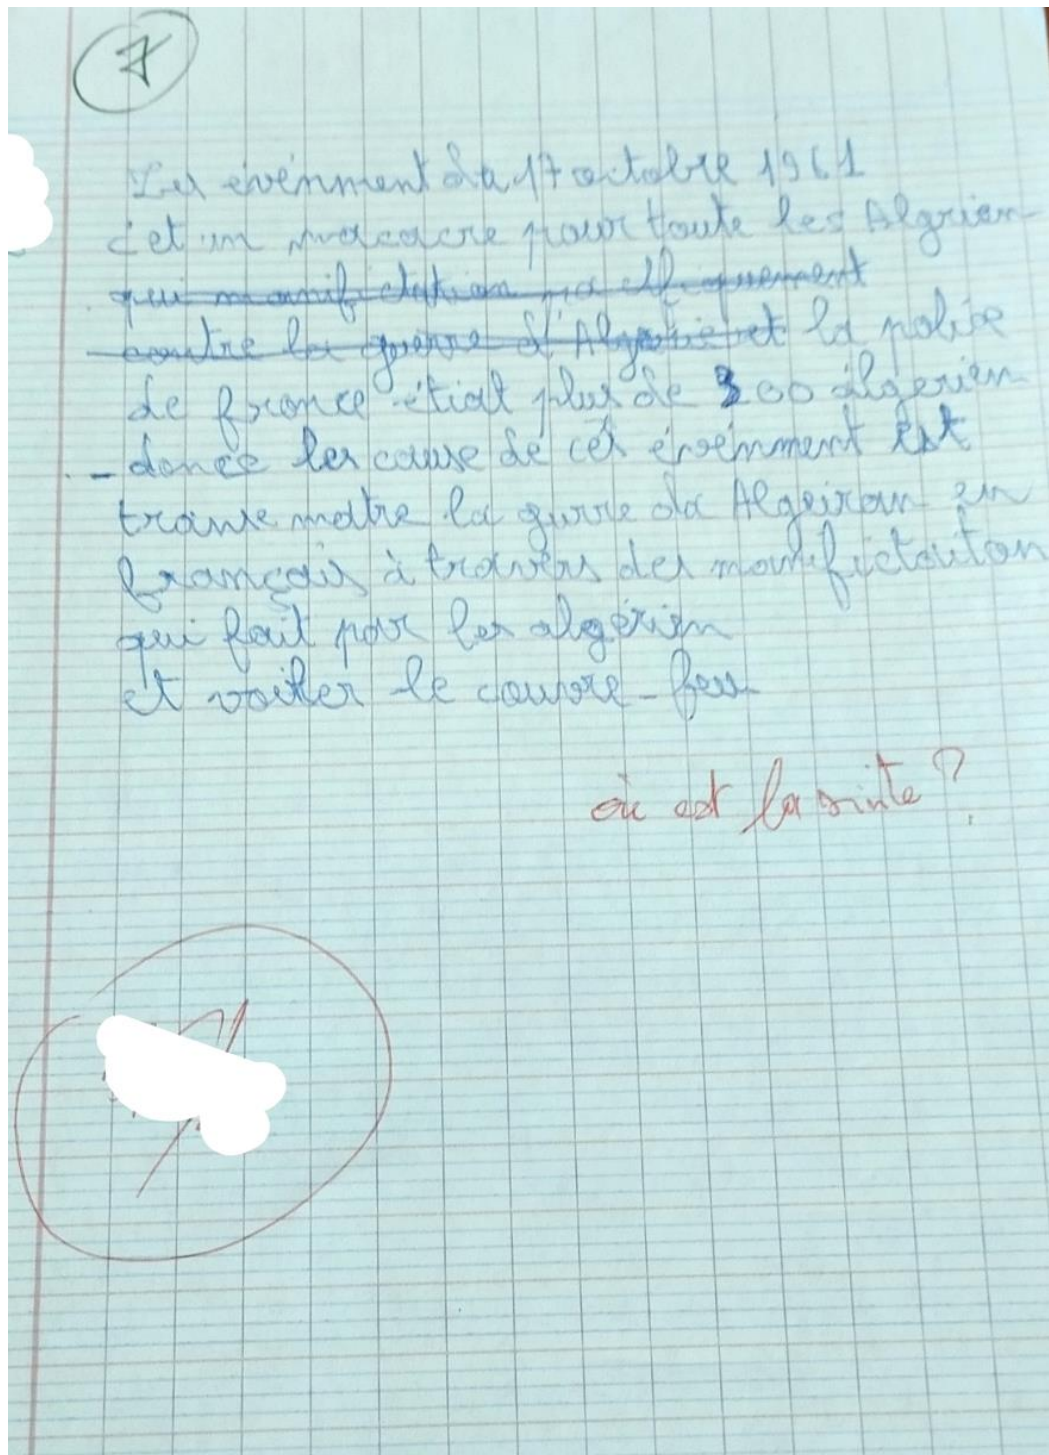 7
Les évènment da 17 octobre 1961
c'et un macacre pour toute les Algrien
qui manifictation pa cifiquement
contre la guerre d'Algerie et la police
de france étiat plus de 300 algerien
- donce les cause de cet évènment est
transe matre la gurre da Algeiran en
français à travers des manifictaiton
qui fait par les algérien
et voiler le couvre-feu
où est la suite ?